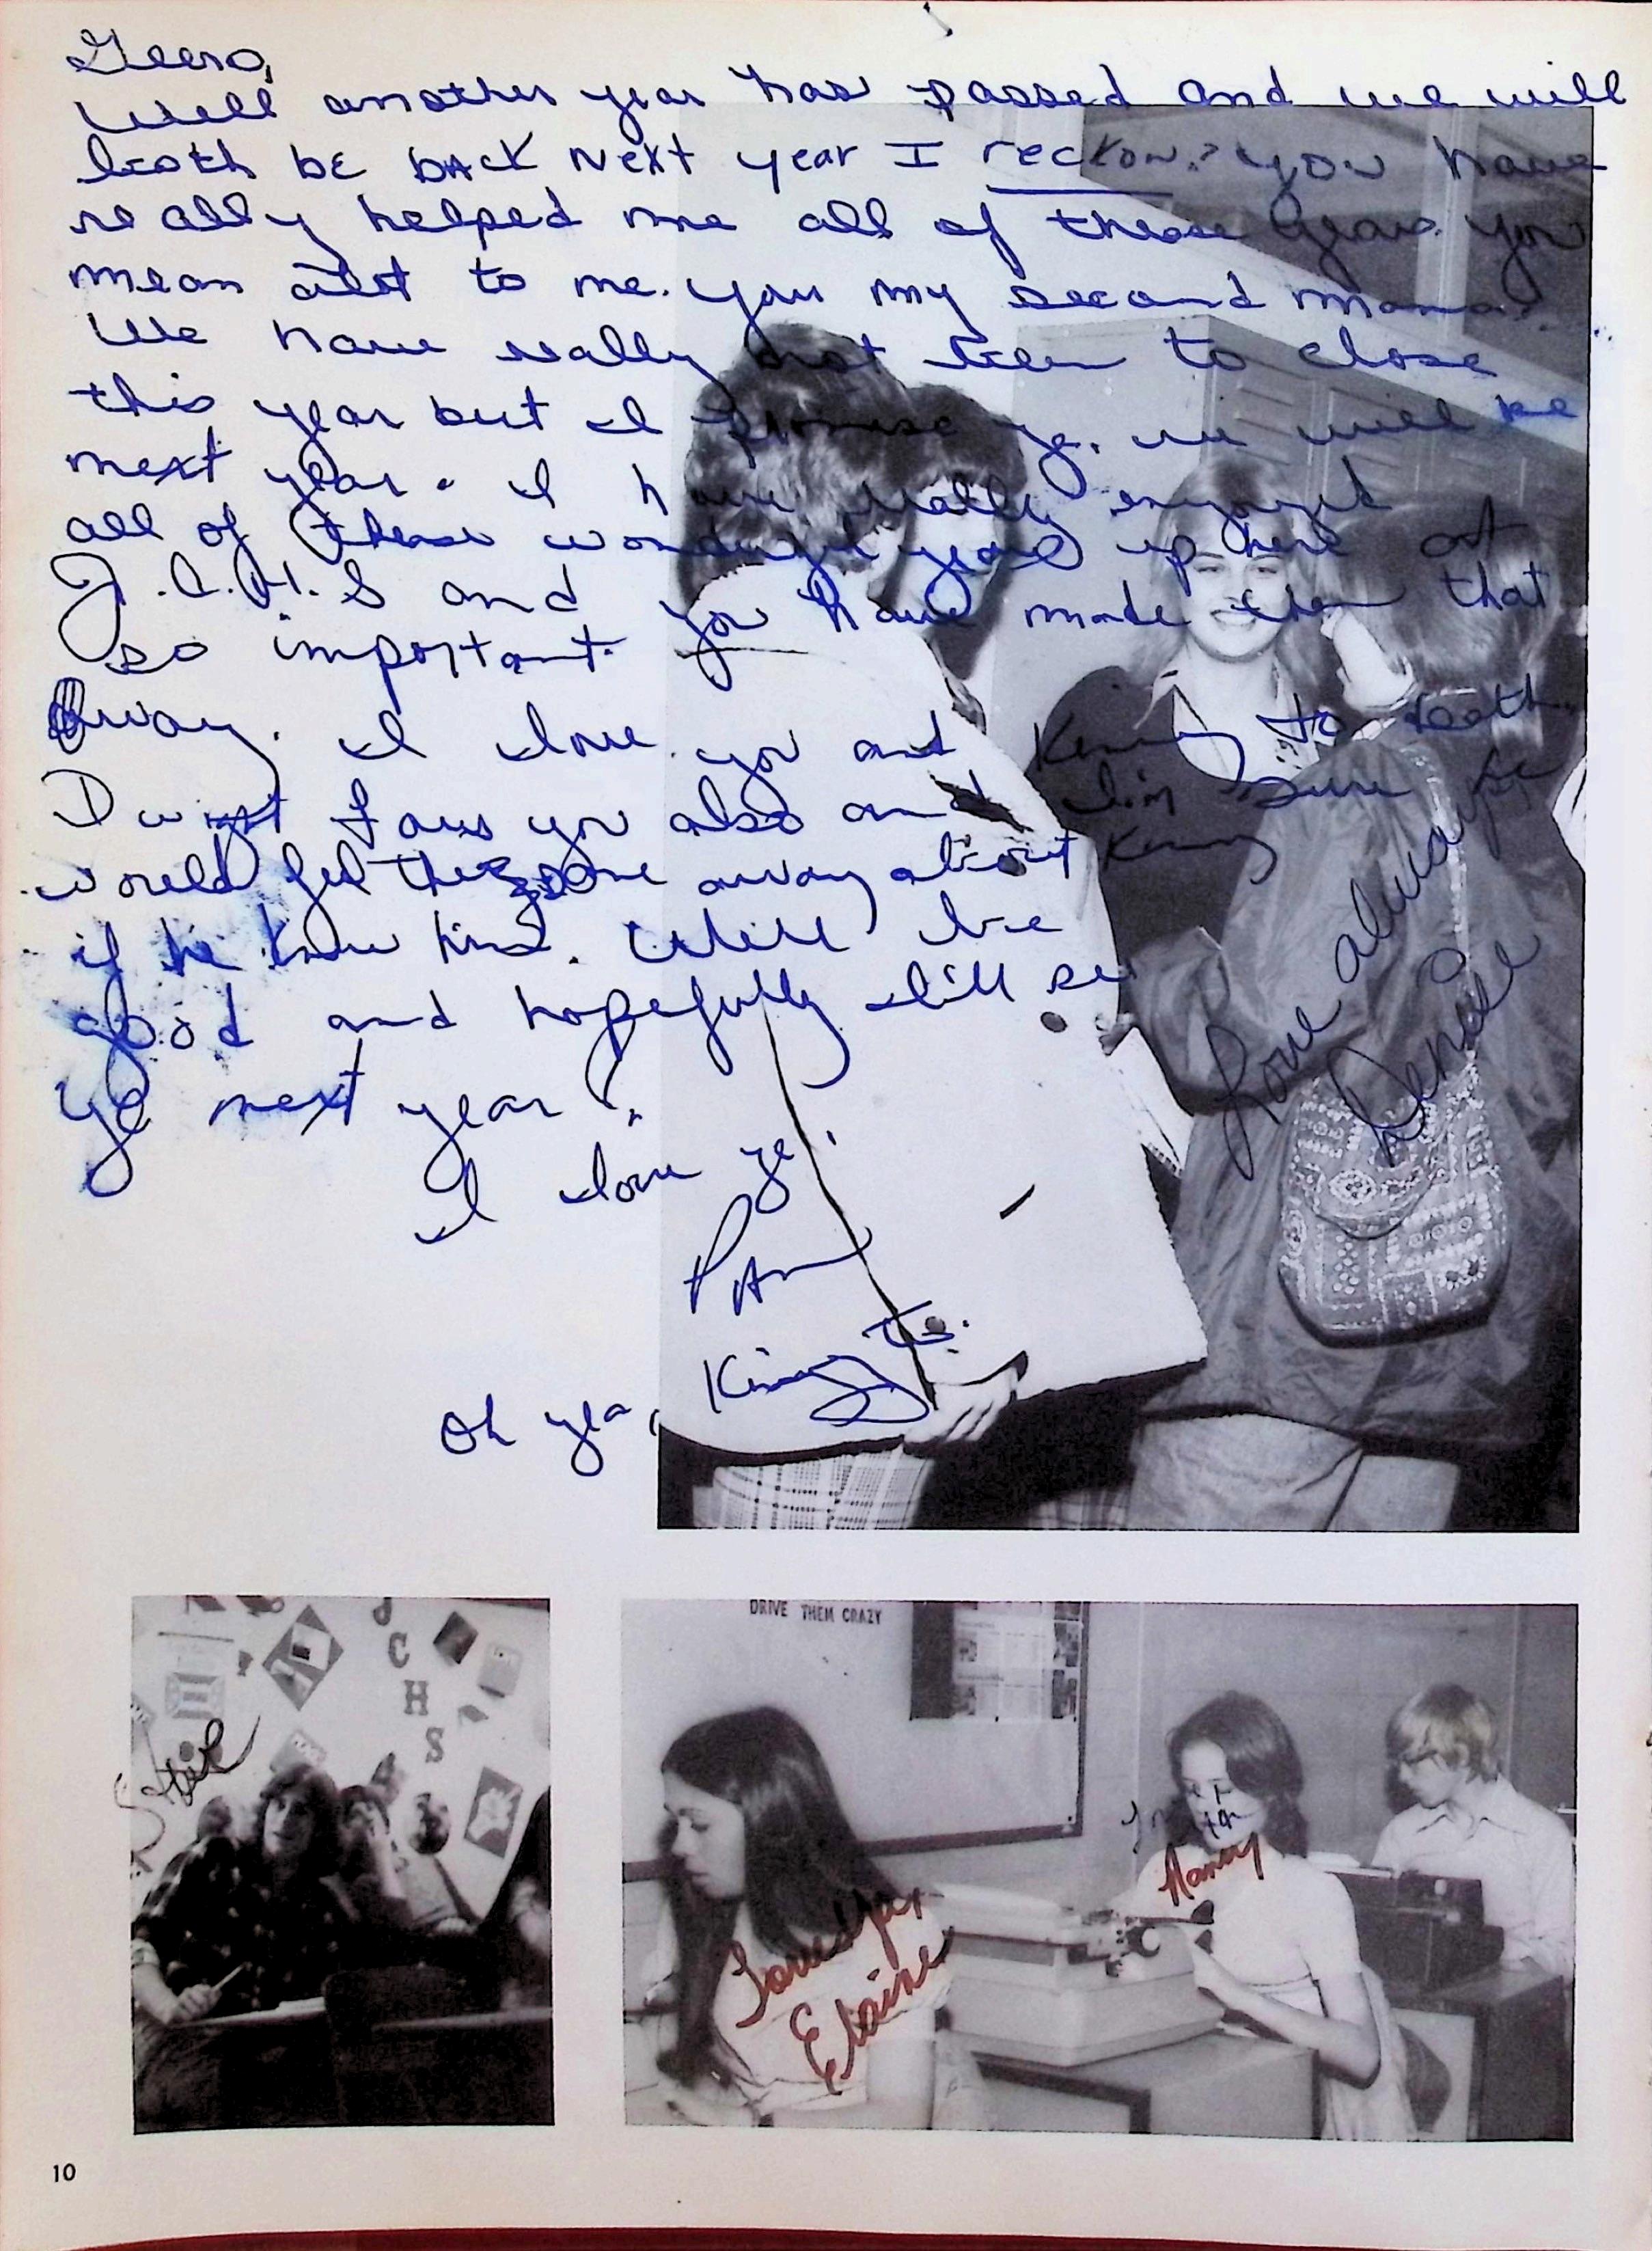 Well another year has passed and we will
both be back next year I reckon? You have
really helped me all of these years. You
mean alot to me. You my second mama.
We have really not been to close
this year but I promise ye. we will be
next year. I have really enjoyed
all of these wonderful years up here at
J.C.H.S and you have made them that
so important.
away. I love you and Kenny to death.
Dwight loves you also and I'm sure he
would feel the same away about Kenny
if he knew him. Well be
good and hopefully I'll see
ye next year?
I love ye,
Pam
Oh yea, Kenny to.
Love always
Denise
DRIVE THEM CRAZY
J
C
H
S
Love Ya,
Elaine
Nancy
10